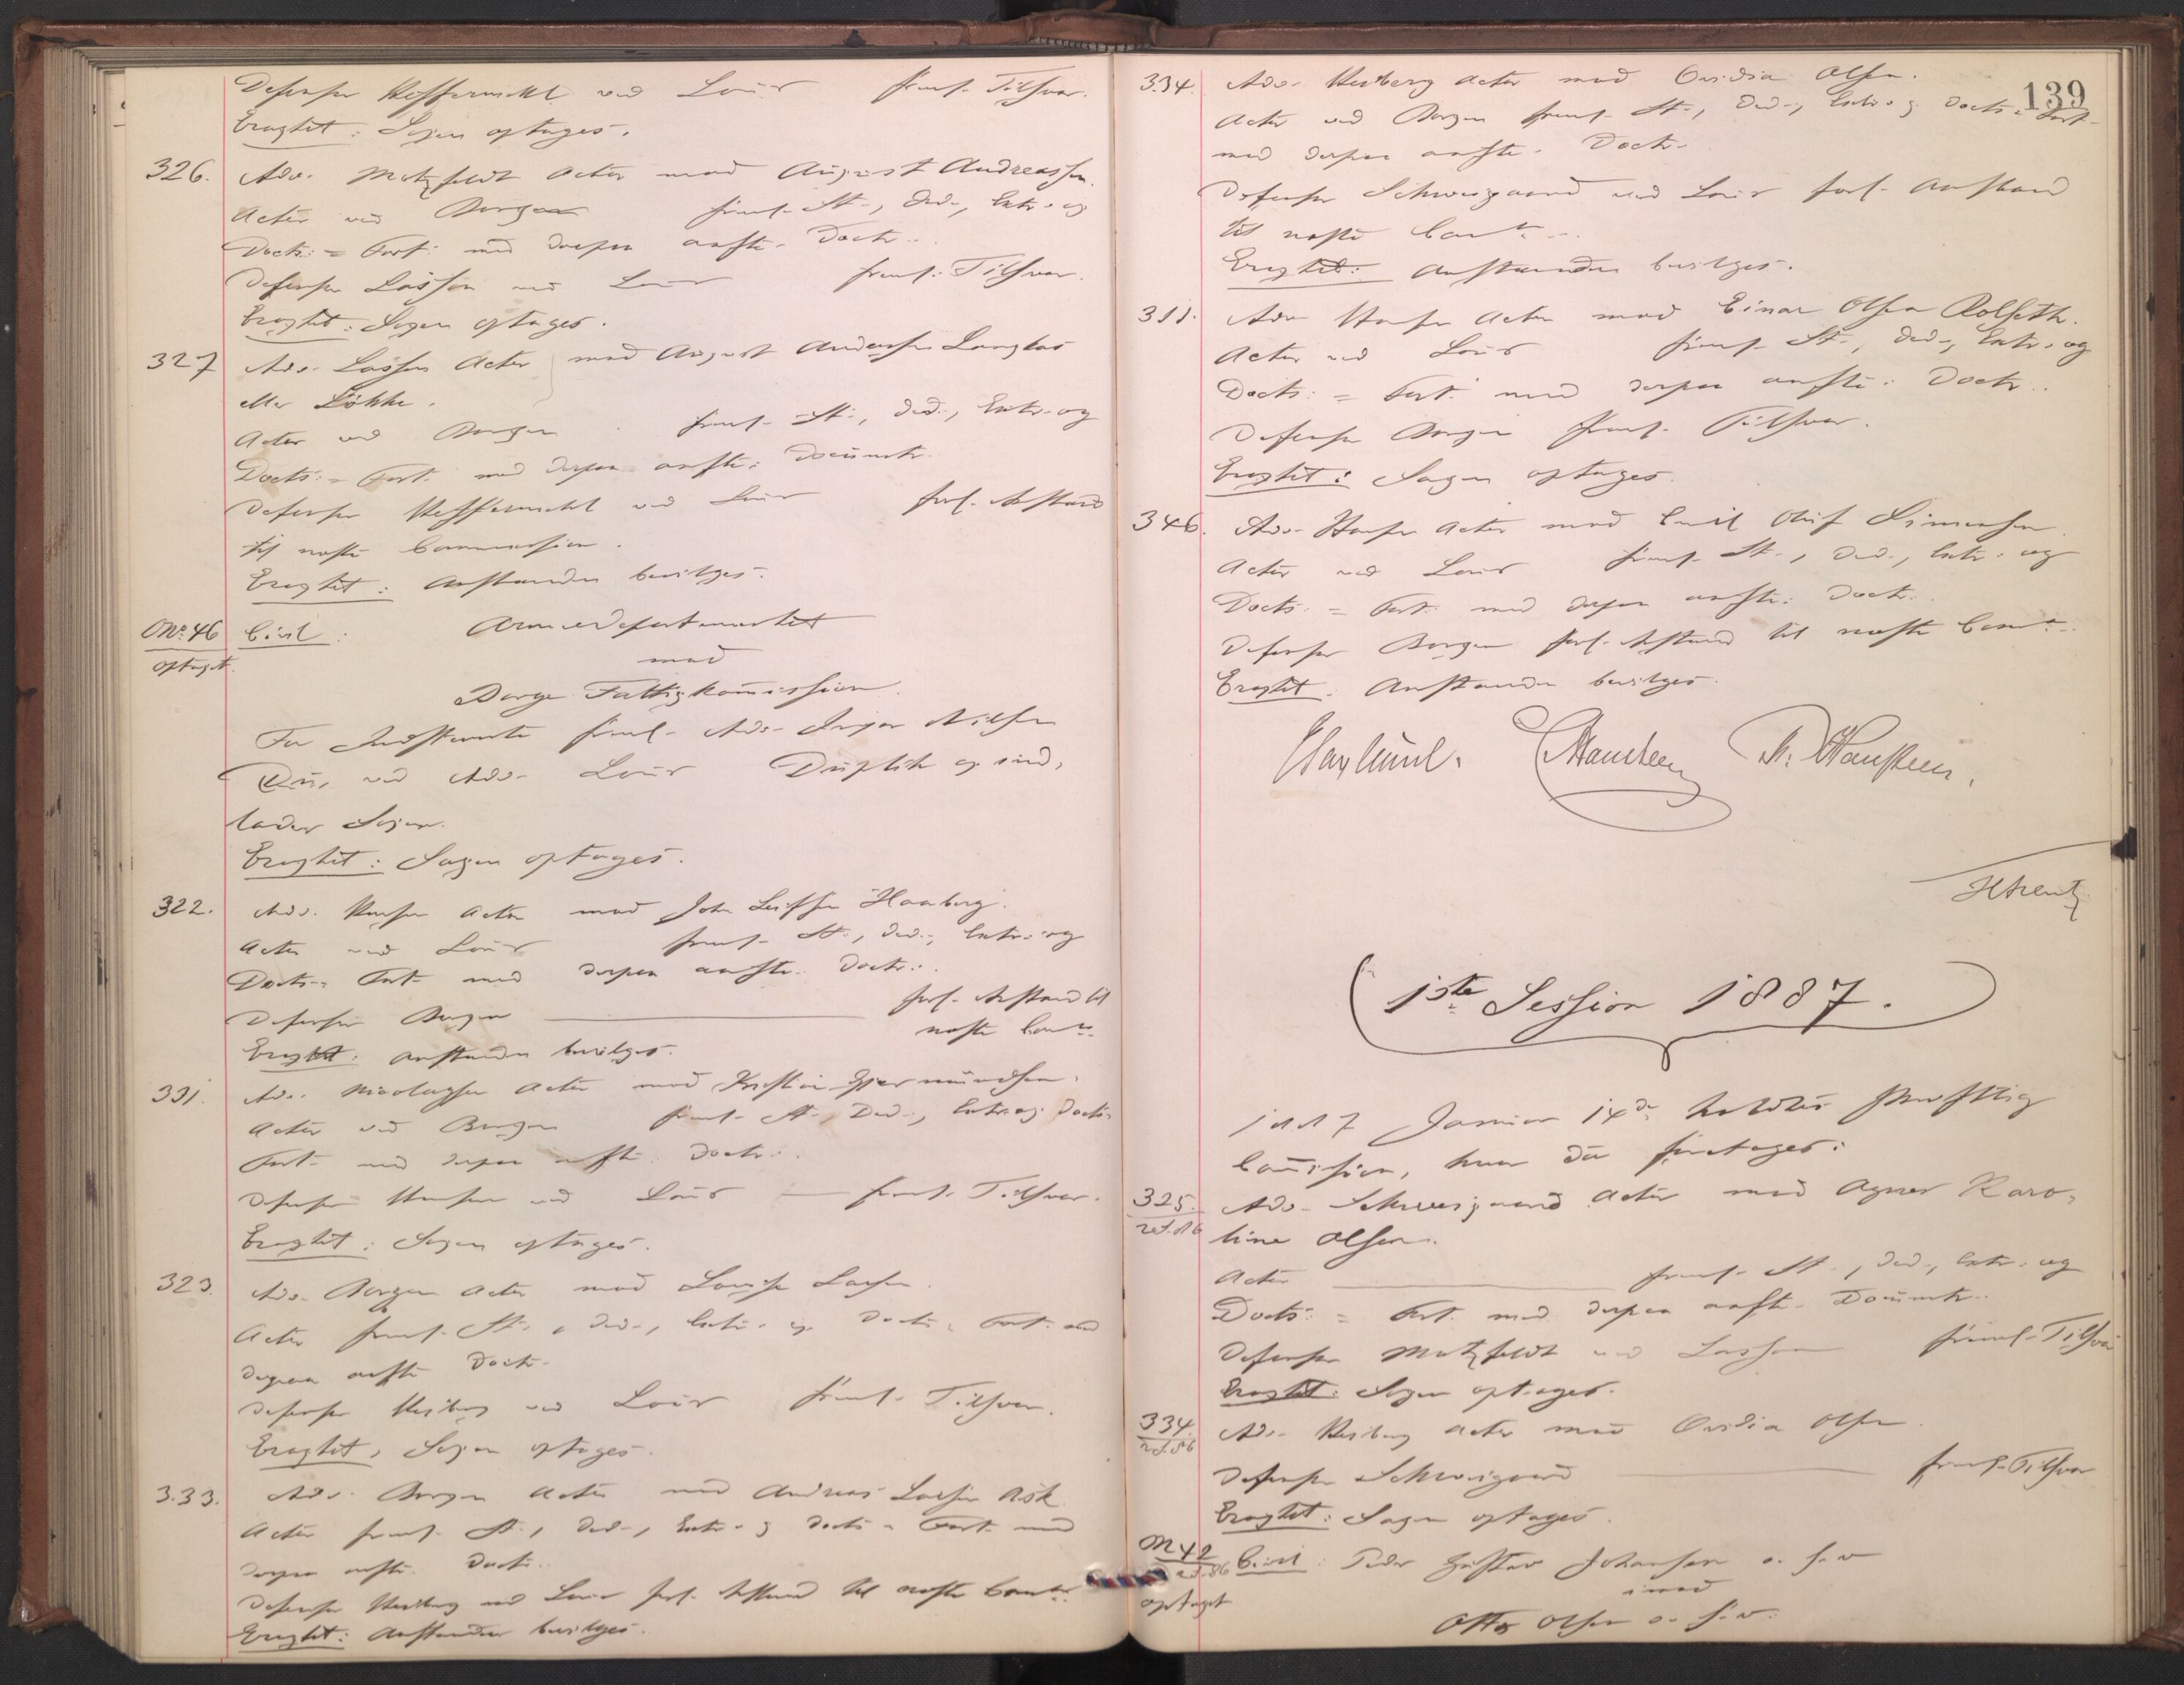 Defensor ved Louis freml. Tilsvar.
Eragtet: Sagen optages.
326. Adv. Motzfeldt Actor mod August Andreassen.
Actor ved Borgen freml. St., Ded., Extr. og
Docts: = Fort. med derpaa anførte Doctr.
Defensor Lasson ved Louis freml. Tilsvar.
Eragtet: Sagen optages.
327 Adv. Lasson Actor mod August Andersen
eller Løkke.
Actor ved Borgen freml. St., Ded., Extr. og
Docts: = Fort. med derpaa anførte: Documtr.
Defensor ved Louis forl. Anstand
til næste Commission.
Eragtet: Anstanden bevilges.
No. 46 Civil: Armedepartementet
optaget.
mod
Borge Fattigkommission.
For Indstevnte freml. Adv. Nilsen
ved Adv. Louis Duplik og ind,
lader Sagen.
Eragtet: Sagen optages.
322. Adv. Actor mod John Leifsen Haaberg.
Actor ved Louis freml. St., Ded., Extr. og
Docts: Fort. med derpaa anførte Doctr.
Defensor Borgen forl. Anstand til
næste Comm.
Eragtet: Anstanden bevilges.
331. Adv. Nicolaysen Actor mod Kristian
Actor ved Borgen freml. St., Ded., Extr. og Docts:
Fort. med derpaa anførte Doctr.
Defensor ved Louis freml. Tilsvar.
Eragtet: Sagen optages.
323. Adv. Borgen Actor mod Lovise Larsen.
Actor freml. St., Ded., Extr. og Docts: Fort. med
derpaa anførte Doctr.
Defensor Heiberg ved Louis freml. Tilsvar.
Eragtet, Sagen optages.
333. Adv. Borgen Actor mod Andreas Larsen Ask.
Actor freml. St., Ded., Extr. og Docts: Fort. med
derpaa anførte Doctr.
Defensor Heiberg ved Louis forl. Anstand til næste Comm.
Eragtet: Anstanden bevilges.
139
334. Adv. Heiberg Actor mod Ovidia Olsen.
Actor ved Borgen freml. St., Ded., Extr. og Docts: Fort.
med derpaa anførte Doctr.
Defensor Schweigaard ved Louis forl. Anstand
til næste Comm.
Eragtet: Anstanden bevilges.
311. Adv. Actor mod Einar Olsen Rolseth.
Actor ved Louis freml. St., Ded., Extr. og
Docts: = Fort. med derpaa anførte: Doctr.
Defensor Borgen freml. Tilsvar.
Eragtet: Sagen optages.
346. Adv. Actor mod Emil Oluf Simensen
Actor ved Louis freml. St., Ded., Extr. og
Docts: = Fort. med derpaa anførte: Doctr.
Defensor Borgen forl. Anstand til næste Comm.
Eragtet: Anstanden bevilges.
1ste Session 1887.
1887 Januar 14de holdtes skriftlig
Comission, hvor da foretages:
325. Adv. Schweigaard Actor mod Agnes Karo-
line Olsen.
Actor freml. St., Ded., Extr. og
Docts: = Fort. med derpaa anførte Documtr.
Defensor Motzfeldt ved Lasson freml. Tilsvar
Eragtet: Sagen optages.
334. Adv. Heiberg Actor mod Ovidia Olsen
Defensor Schweigaard freml. Tilsvar
Eragtet: Sagen optages.
No 42 Civil: Peder Gustav Johansen o. s. v
optaget imod
Otto Olsen o. s. v.